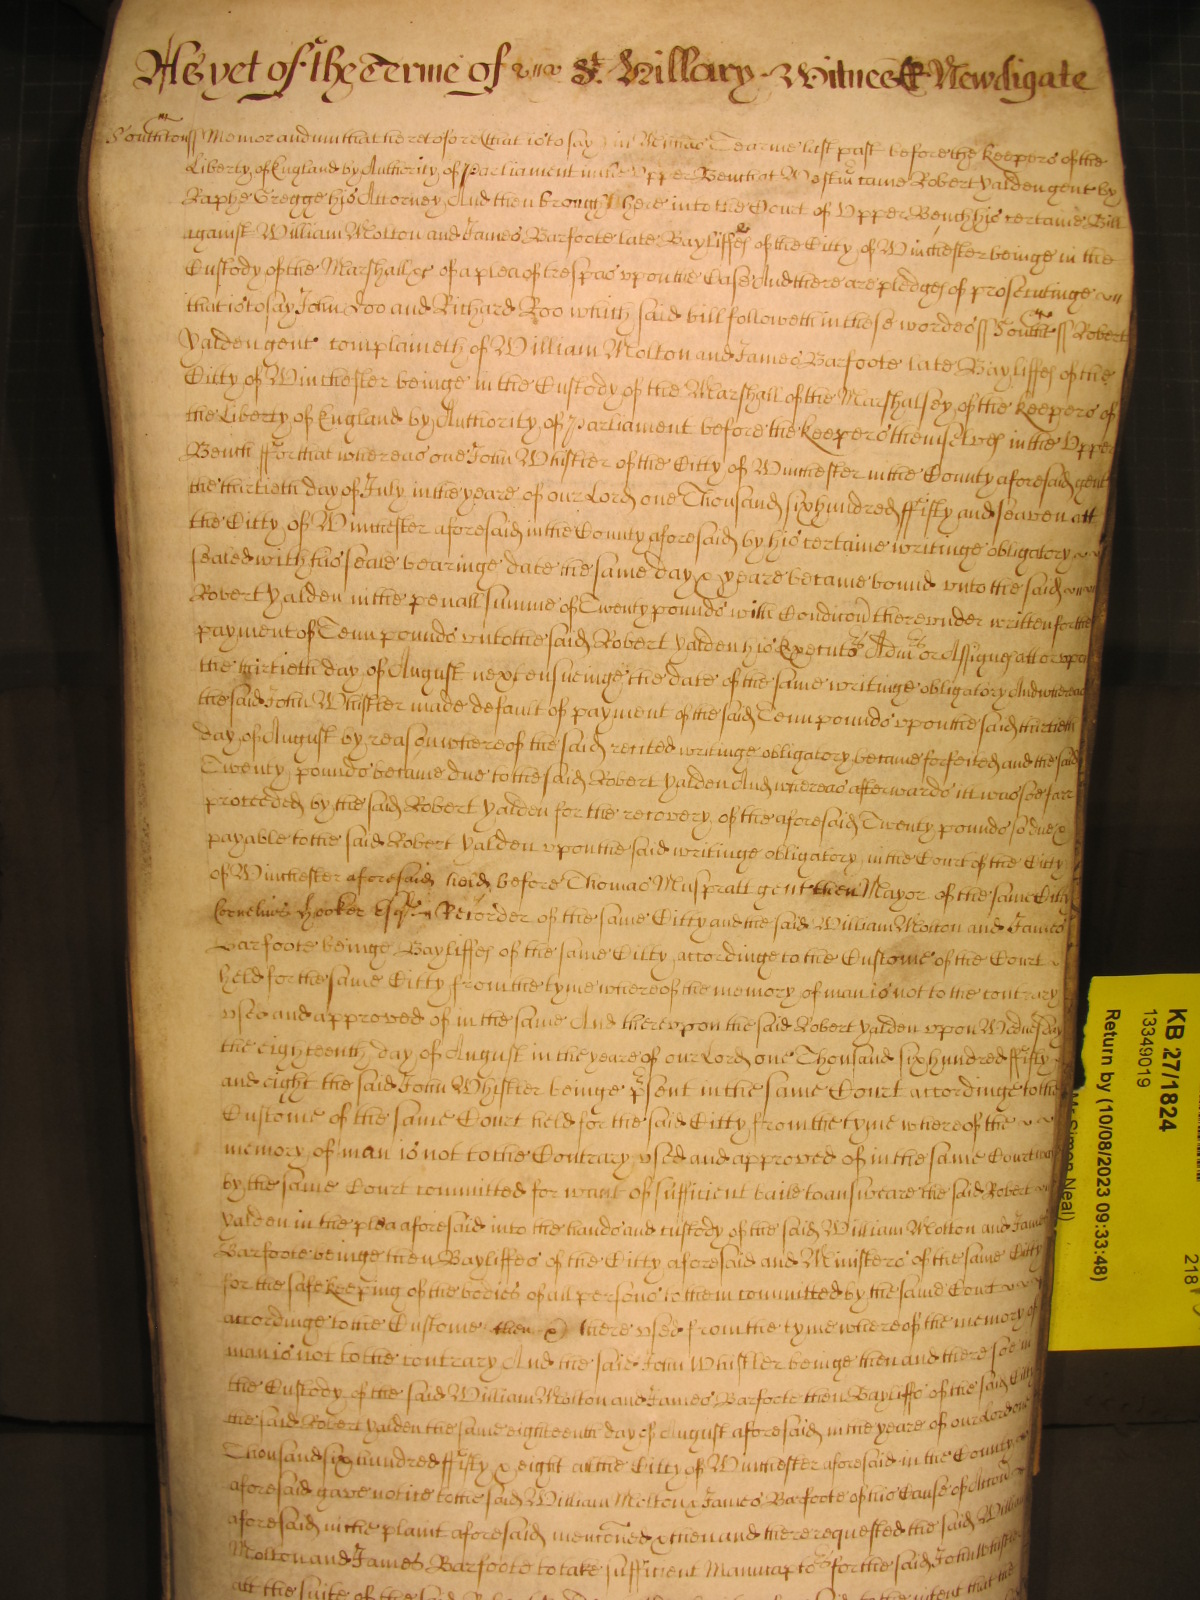 As yet of the Terme of St. Hillary Witnes Newdigate
Southton ss Memorandum that heretofore (that is to say) in Michas Tearme last past before the Keepers of the
Liberty of England by Authority of Parliament in the Upper Bench at Westm came Robert Yalden gent by
Raphe Gregge his Attorney And then brought here into the Court of Upper Bench his certaine Bill
against William Molton and James Barfoote late Bayliffes of the Citty of Winchester beinge in the
Custody of the Marshall &c of a plea of trespas upon the Case And there are pledges of prosecutinge
that is to say John Doo and Richard Roo which said bill followeth in these wordes ss Southt ss Robert
Yalden gent complaineth of William Molton and James Barfoote late Bayliffes of the
Citty of Winchester beinge in the Custody of the Marshall of the Marshalsey of the Keepers of
the Liberty of England by Authority of Parliament before the Keepers themselves in the Upper
Bench ffor that whereas one John Whistler of the Citty of Winchester in the County aforesaid gent
the thirtieth day of July in the yeare of our Lord one Thousand six hundred ffifty and seaven att
the Citty of Winchester aforesaid in the County aforesaid by his certaine writinge obligatory
sealed with his seale bearinge date the same day & yeare became bound unto the said
Robert Yalden in the penall summe of Twenty pounds with Condicon thereunder written for the
payment of Tenn pounds unto the said Robert Yalden his Executrs Admrs or Assignes att or upon
the thirtieth day of August next ensueinge the date of the same writinge obligatory And whereas
the said John Whistler made default of payment of the said Tenn pounds upon the said thirtieth
day of August by reason whereof the said recited writinge obligatory became forfeited and the said
Twenty pounds became due to the said Robert Yalden And whereas afterwards itt was soe farr
proceeded by the said Robert Yalden for the recovery of the aforesaid Twenty pounds so due &
payable to the said Robert Yalden upon the said writinge obligatory in the Court of the Citty
of Winchester aforesaid held before Thomas Muspratt gent then Mayor of the same Citty
Cornelius Hooker Esqr Recorder of the same Citty and the said William Molton and James
Barfoote beinge Bayliffes of the same Citty accordinge to the Custome of the Court
held for the same Citty from the tyme whereof the memory of man is not to the contrary
used and approved of in the same And thereupon the said Robert Yalden upon Wednesday
the eighteenth day of August in the yeare of our Lord one Thousand six hundred ffifty
and eight the said John Whistler beinge psent in the same Court accordinge to the
Custome of the same Court held for the said Citty from the tyme whereof the
memory of man is not to the Contrary used and approved of in the same Court was
by the same Court committed for want of sufficient baile to answeare the said Robert
Yalden in the plea aforesaid into the hands and custody of the said William Molton and James
Barfoote beinge then Bayliffes of the Citty aforesaid and Ministers of the same Citty
for the safe keeping of the bodies of all persons to them committed by the same Court
accordinge to the Custome then & there used from the tyme whereof the memory of
man is not to the contrary And the said John Whistler beinge then and there soe in
the Custody of the said William Molton and James Barfoote then Bayliffs of the said Citty
the said Robert Yalden the same eighteenth day of August aforesaid in the yeare of our Lord one
Thousand six hundred ffifty & eight att the Citty of Winchester aforesaid in the County
aforesaid gave notice to the said William Molton & James Barfoote of his Cause of Action
aforesaid in the plaint aforesaid mentioned & then and there requested the said William
Molton and James Barfoote to take sufficient Manucaptors for the said John Whistler
att the suite of the said to the intent that the
KB 27/1824
13349019
Return by (10/08/2023 09:33:48)
Simon Neal)
218